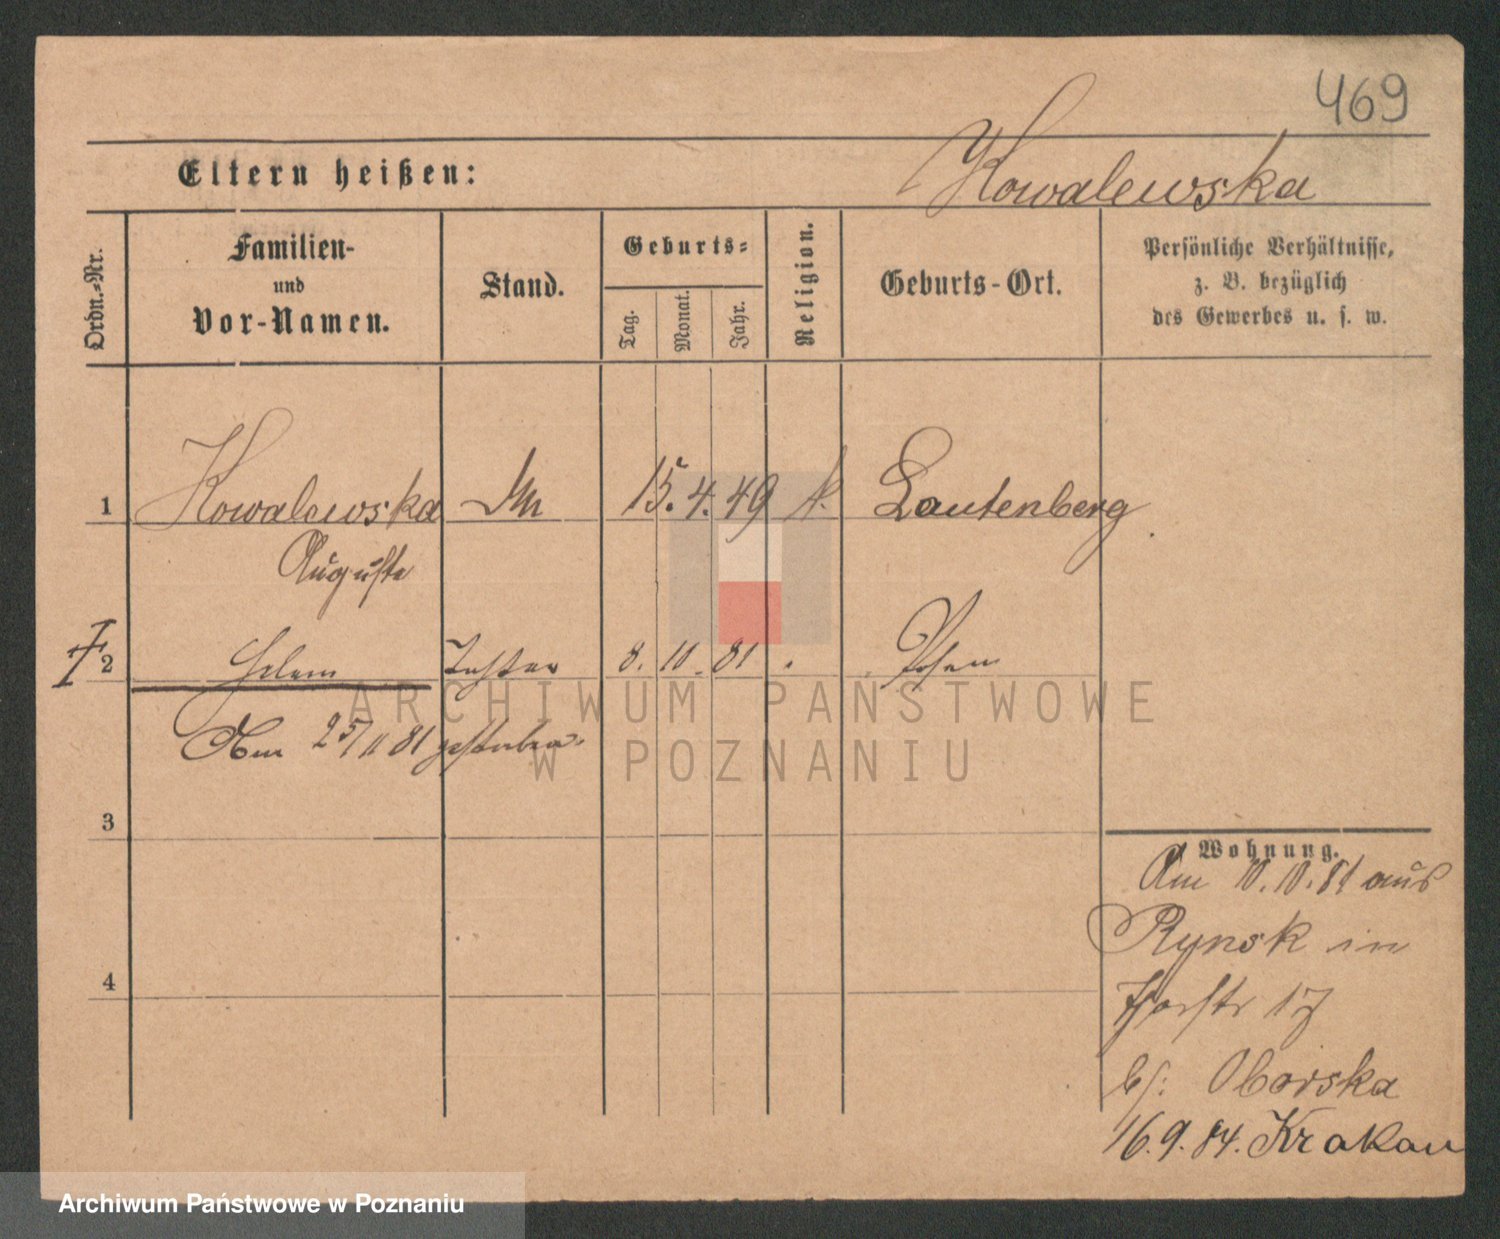 469
Eltern heißen:
Kowalewska
Ordn.-Nr.
Familien-
und
Vor-Namen.
Stand.
Geburts-
Tag.
Monat.
Jahr.
Religion.
Geburts-Ort.
Persönliche Verhältnisse,
z. B. bezüglich
des Gewerbes u. s. w.
1 Kowalewska 15. 4. 49 k. Lautenberg
Auguste
2 Helene Tochter 8. 10. 81 Posen
Am 25/11 81 gestorben.
ARCHIWUM PAŃSTWOWE
W POZNANIU
3
4
Wohnung.
Am 10. 10. 81 aus
Rynsk in
17
bei: Oborska
16. 9. 84. Krakau
Archiwum Państwowe w Poznaniu